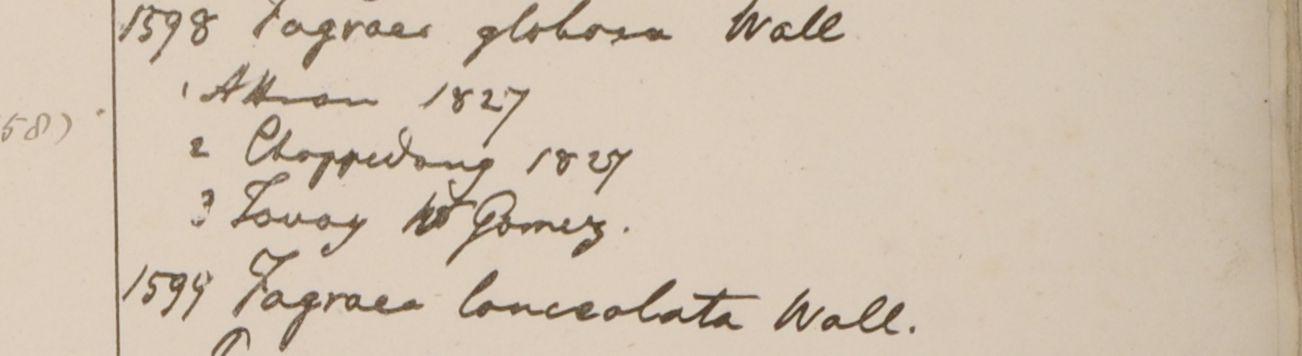 1598 Fagraea globosa Wall
1 Attran 1827
2 Chappedong 1827
3 Tavoy W Gomez.
58)
1599 Fagraea lanceolata Wall.